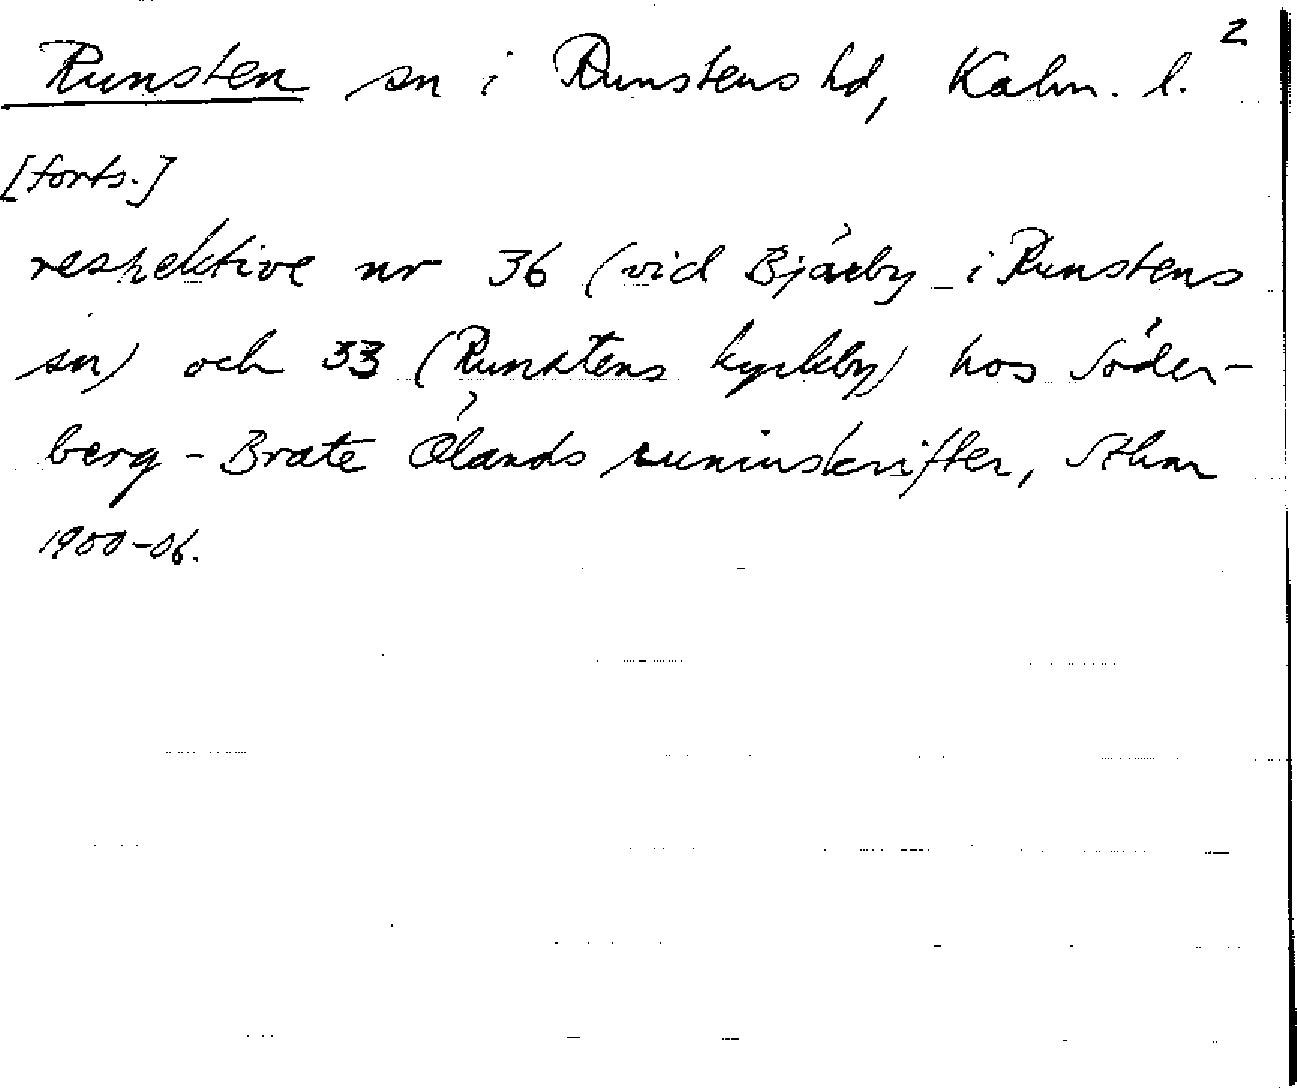 2
Runsten sn i Runstens hd, Kalm. l.
[forts.]
respektive nr 36 (vid Bjärby i Runstens
sn) och 33 (Runstens kyrkby) hos Söder-
berg - Brate Ölands runinskrifter, Sthlm
1900-06.